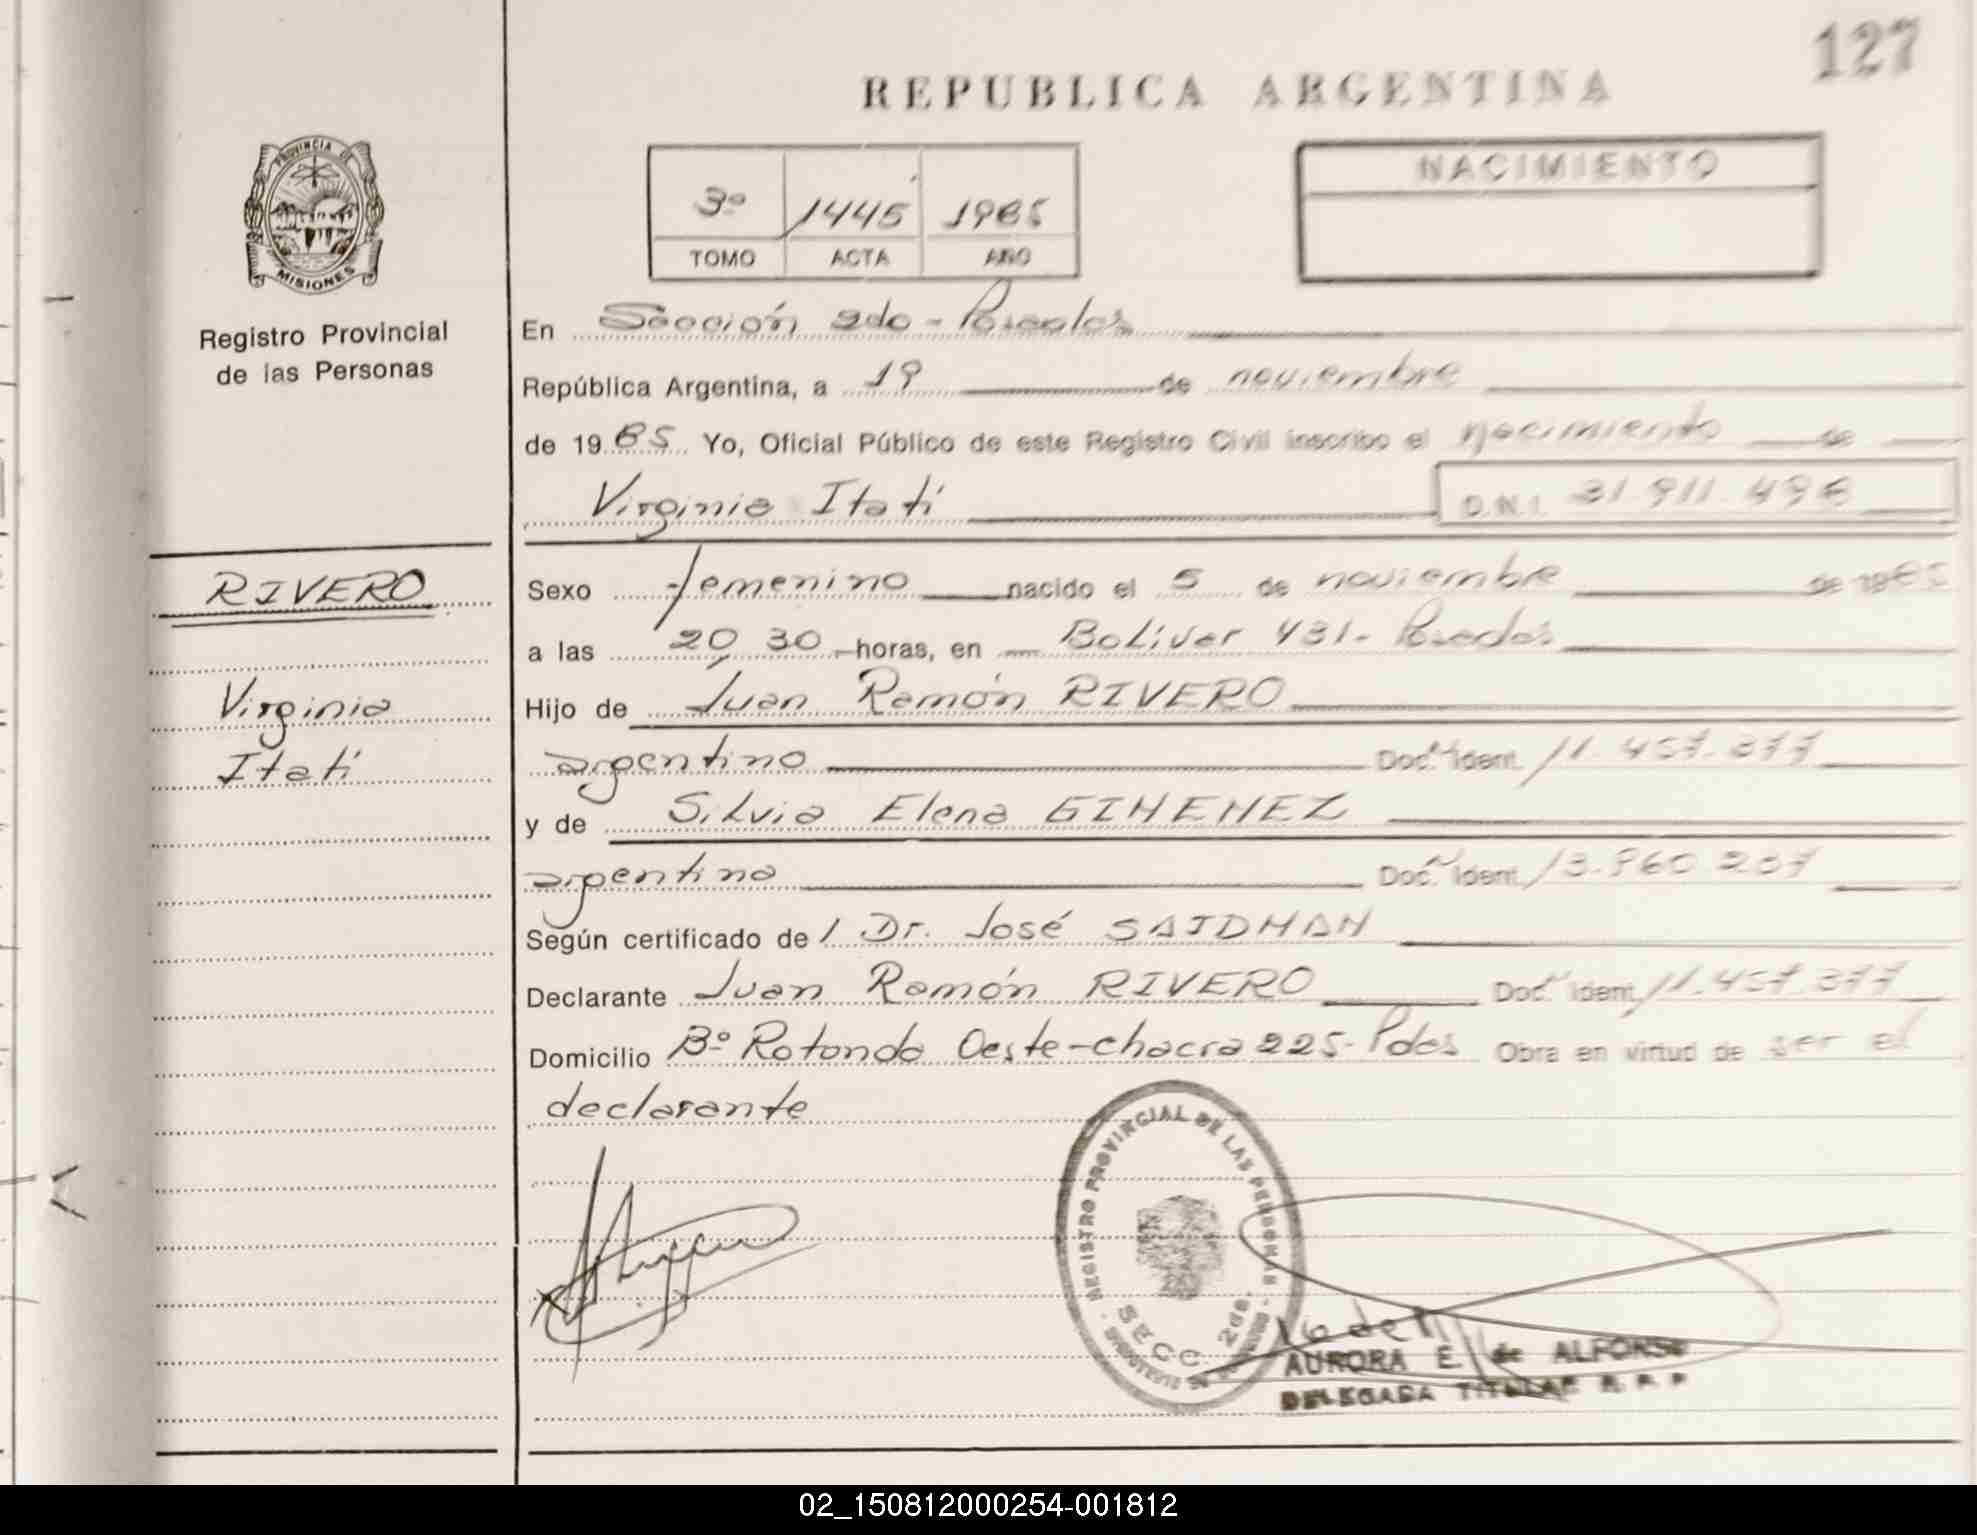 127
REPUBLICA ARGENTINA
PROVINCIA DE
MISIONES
Registro Provincial
de las Personas
3º 1445 1985
TOMO ACTA AÑO
NACIMIENTO
En Sección 2do - Posadas
República Argentina, a 19 de noviembre
de 1985 Yo, Oficial Público de este Registro Civil inscribo el nacimiento de
Virginia Itati D.N.I. 31.911.498
RIVERO
Virginia
Itati
Sexo femenino nacido el 5 de noviembre de 1985
a las 20,30 horas, en Bolivar 431 - Posadas
Hijo de Juan Ramón RIVERO
argentino Doc. Ident. 11.457.377
y de Silvia Elena GIMENEZ
argentina Doc. Ident. 13.960.207
Según certificado de / Dr. José SAIDMAN
Declarante Juan Ramón RIVERO Doc. Ident. 11.457.377
Domicilio Bº Rotonda Oeste - chacra 225 - Pdas Obra en virtud de ser el
declarante
REGISTRO PROVINCIAL DE LAS PERSONAS
SECC. 2da.
AURORA E. de ALFONSO
DELEGADA TITULAR R. P. P
02_150812000254-001812